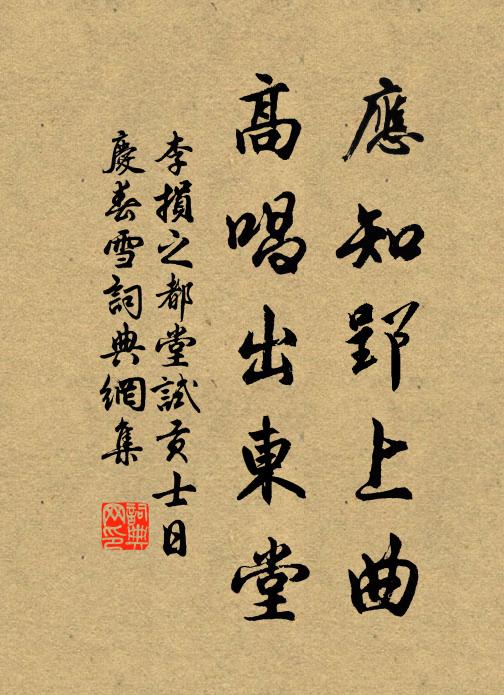 應知郢上曲
高唱出東堂
李損之都堂試貢士日
慶春雪詞典網集
詞典
网印